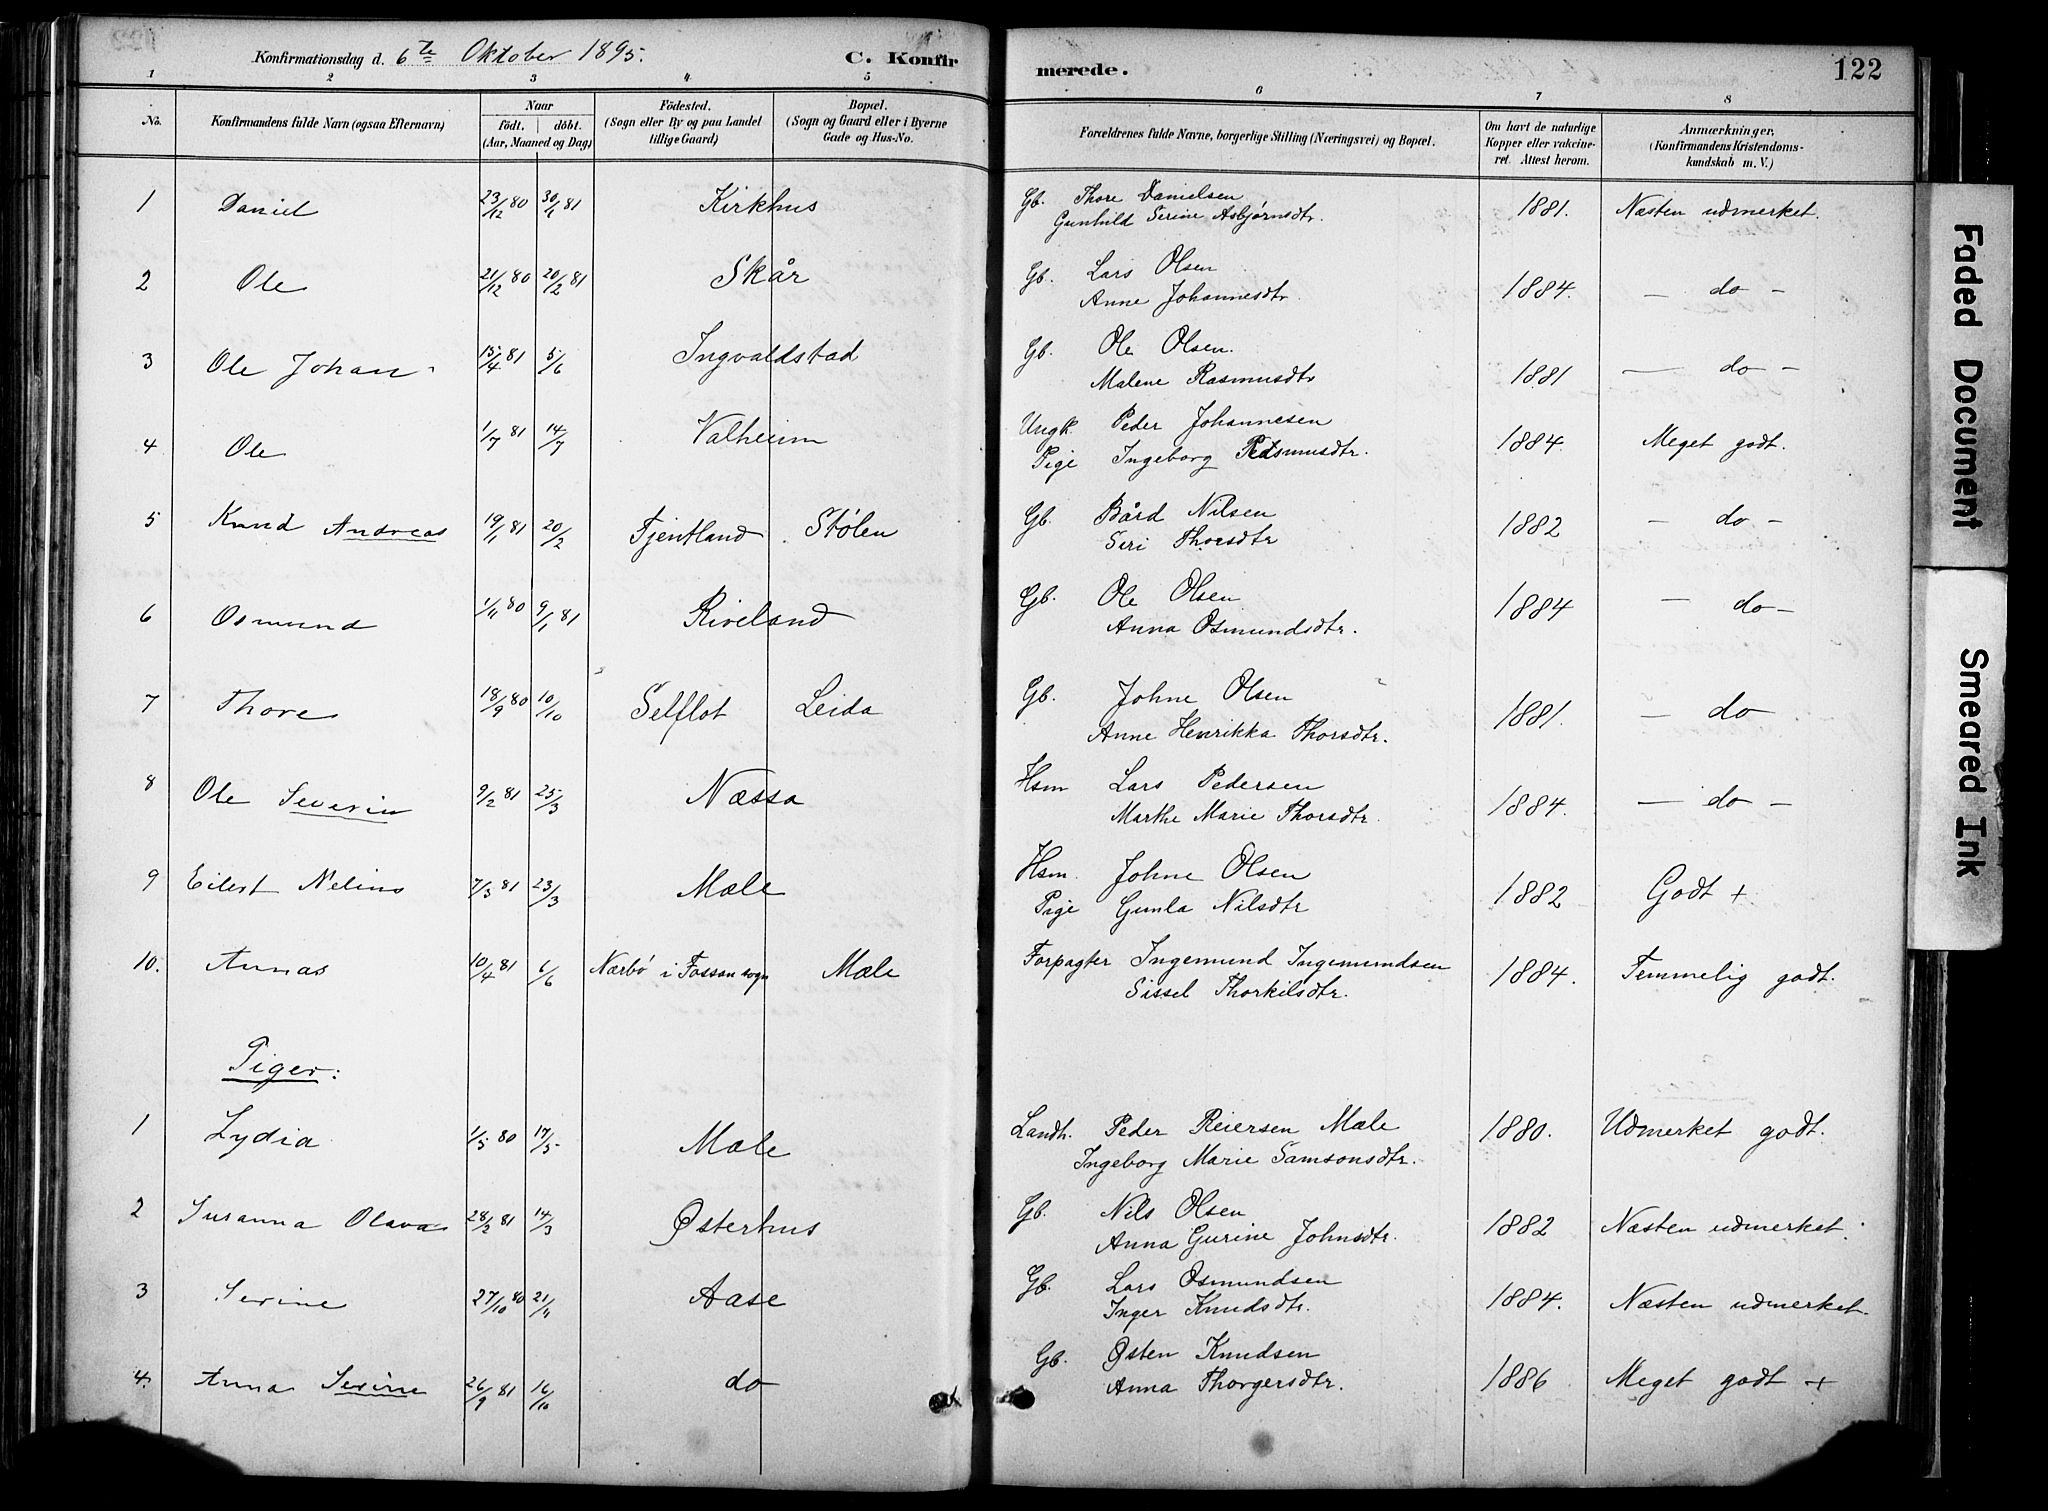 Konfirmationsdag d. 6te Oktober 1895. C. Konfirmerede. 122
1 2 3 4 5 6 7 8
No. Konfirmandens fulde Navn (ogsaa Efternavn) Naar født. døbt. (Aar, Maaned og Dag) Födested. (Sogn eller By og paa Landet tillige Gaard) Bopæl. (Sogn og Gaard eller i Byerne Gade og Hus-No. Forældrenes fulde Navne, borgerlige Stilling (Næringsvei) og Bopæl. Om havt de naturlige Kopper eller vakcineret. Attest herom. Anmærkninger. (Konfirmandens Kristendomskundskab m. V.)
1 Daniel 23/12 80 30/1 81 Kirkhus Gb. Thore Danielsen 1881. Næsten udmerket.
Gunhild Serine Asbjørnsdtr.
2 Ole 21/12 80 20/2 81 Skår Gb. Lars Olsen 1884. — do —
Anne Johannesdtr.
3 Ole Johan 15/4 81 5/6 Ingvaldstad Gb. Ole Olsen. 1881 — do —
Malene Rasmusdtr
4 Ole 1/7 81 14/7 Valheim Ungk. Peder Johannesen 1884. Meget godt.
Pige Ingeborg Rasmusdtr.
5 Knud Andreas 19/1 81 20/2 Tjentland Stølen Gb. Bård Nilsen 1882 — do —
Seri Thorsdtr
6 Osmund 1/11 80 9/1 81 Riveland Gb. Ole Olsen 1884 — do —
Anna Osmundsdtr.
7 Thore 18/9 80 10/10 Selflot Leida Gb. Johne Olsen 1881. — do
Anne Henrikka Thorsdtr.
8 Ole Severin 9/2 81 25/3 Næssa Hsm Lars Pedersen 1884. — do —
Marthe Marie Thorsdtr.
9 Eilert Nelius 7/3 81 23/3 Mæle Hsm. Johne Olsen 1882 Godt +
Pige Gunla Nilsdtr
10. Annas 10/4 81 6/6 Nærbø i Fossan sogn Mæle Forpagter Ingemund Ingemundsen 1884. Temmelig godt.
Sissel Thorkilsdtr.
Piger:
1 Lydia 1/5 80 17/5 Mæle Landh. Peder Reiersen Mæle 1880. Udmerket godt.
Ingeborg Marie Samsonsdtr.
2 Susanna Olava 28/2 81 14/3 Østerhus Gb. Nils Olsen 1882 Næsten udmerket.
Anna Gurine Johnsdtr.
3 Serine 27/10 80 21/11 Aase Gb. Lars Osmundsen 1884. Næsten udmerket.
Inger Knudsdtr.
4. Anna Serine 26/9 81 16/10 do Gb. Østen Knudsen 1886 Meget godt +
Anna Thorgersdtr.
Faded Document
Smeared Ink